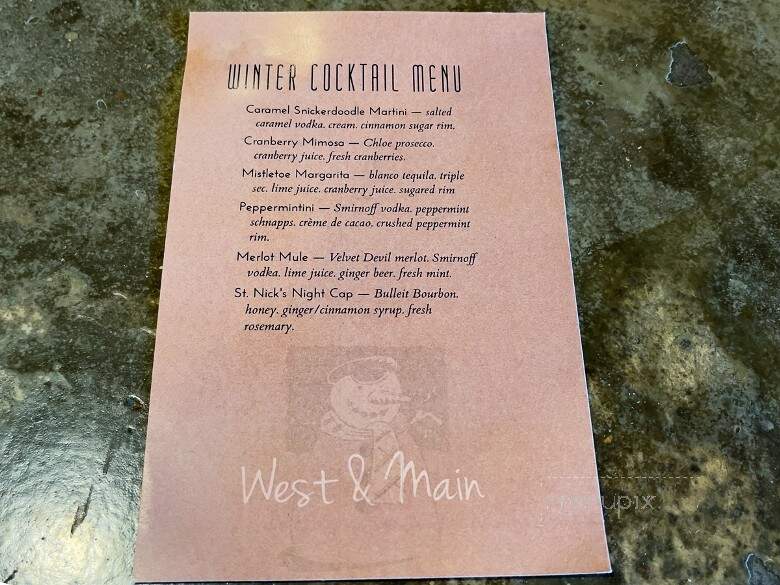 WINTER COCKTAIL MENU
Caramel Snickerdoodle Martini — salted
caramel vodka. cream. cinnamon sugar rim.
Cranberry Mimosa — Chloe prosecco.
cranberry juice. fresh cranberries.
Mistletoe Margarita — blanco tequila. triple
sec. lime juice. cranberry juice. sugared rim
Peppermintini — Smirnoff vodka. peppermint
schnapps. crème de cacao. crushed peppermint
rim.
Merlot Mule — Velvet Devil merlot. Smirnoff
vodka. lime juice. ginger beer. fresh mint.
St. Nick's Night Cap — Bulleit Bourbon.
honey. ginger/cinnamon syrup. fresh
rosemary.
West & Main